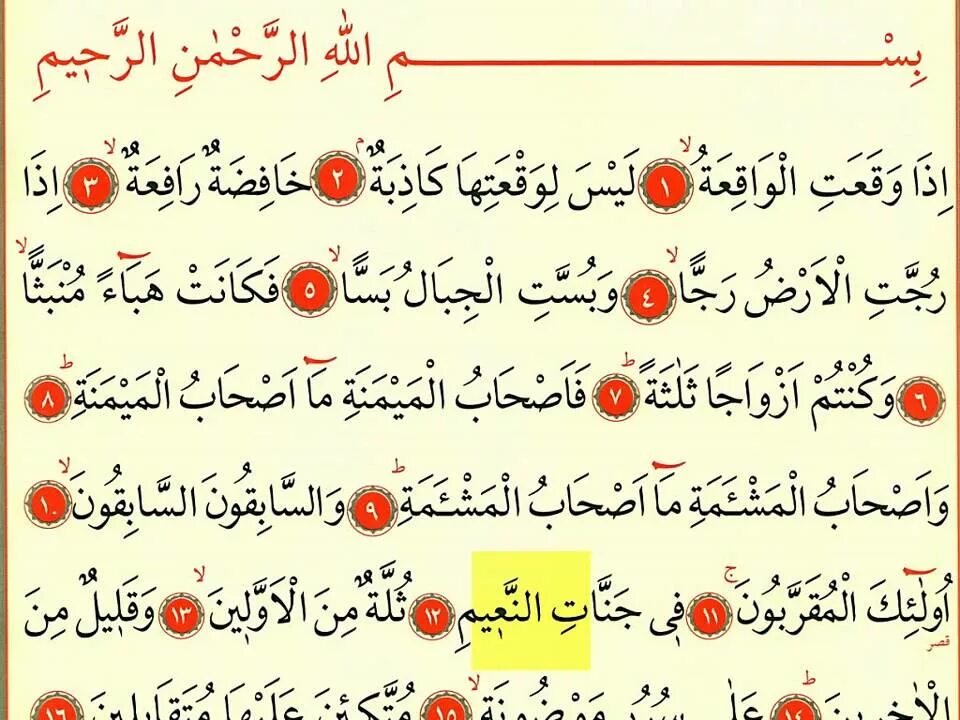 بِسْمِ اللّٰهِ الرَّحْمٰنِ الرَّح۪يمِ
اِذَا وَقَعَتِ الْوَاقِعَةُۙ ﴿١﴾ لَيْسَ لِوَقْعَتِهَا كَاذِبَةٌۢ ﴿٢﴾ خَافِضَةٌ رَافِعَةٌۙ ﴿٣﴾ اِذَا
رُجَّتِ الْاَرْضُ رَجًّاۙ ﴿٤﴾ وَبُسَّتِ الْجِبَالُ بَسًّاۙ ﴿٥﴾ فَكَانَتْ هَبَٓاءً مُنْبَثًّاۙ
﴿٦﴾ وَكُنْتُمْ اَزْوَاجًا ثَلٰثَةًۜ ﴿٧﴾ فَاَصْحَابُ الْمَيْمَنَةِ مَٓا اَصْحَابُ الْمَيْمَنَةِۜ ﴿٨﴾
وَاَصْحَابُ الْمَشْـَٔمَةِ مَٓا اَصْحَابُ الْمَشْـَٔمَةِۜ ﴿٩﴾ وَالسَّابِقُونَ السَّابِقُونَۙ ﴿١٠﴾
اُو۬لٰٓئِكَ الْمُقَرَّبُونَۚ ﴿١١﴾ ف۪ي جَنَّاتِ النَّع۪يمِ ﴿١٢﴾ ثُلَّةٌ مِنَ الْاَوَّل۪ينَۙ ﴿١٣﴾ وَقَل۪يلٌ مِنَ
قصر
الْاٰخِر۪ينَۜ ﴿١٤﴾ عَلٰى سُرُرٍ مَوْضُونَةٍۙ ﴿١٥﴾ مُتَّكِـ۪ٔينَ عَلَيْهَا مُتَقَابِل۪ينَ ﴿١٦﴾